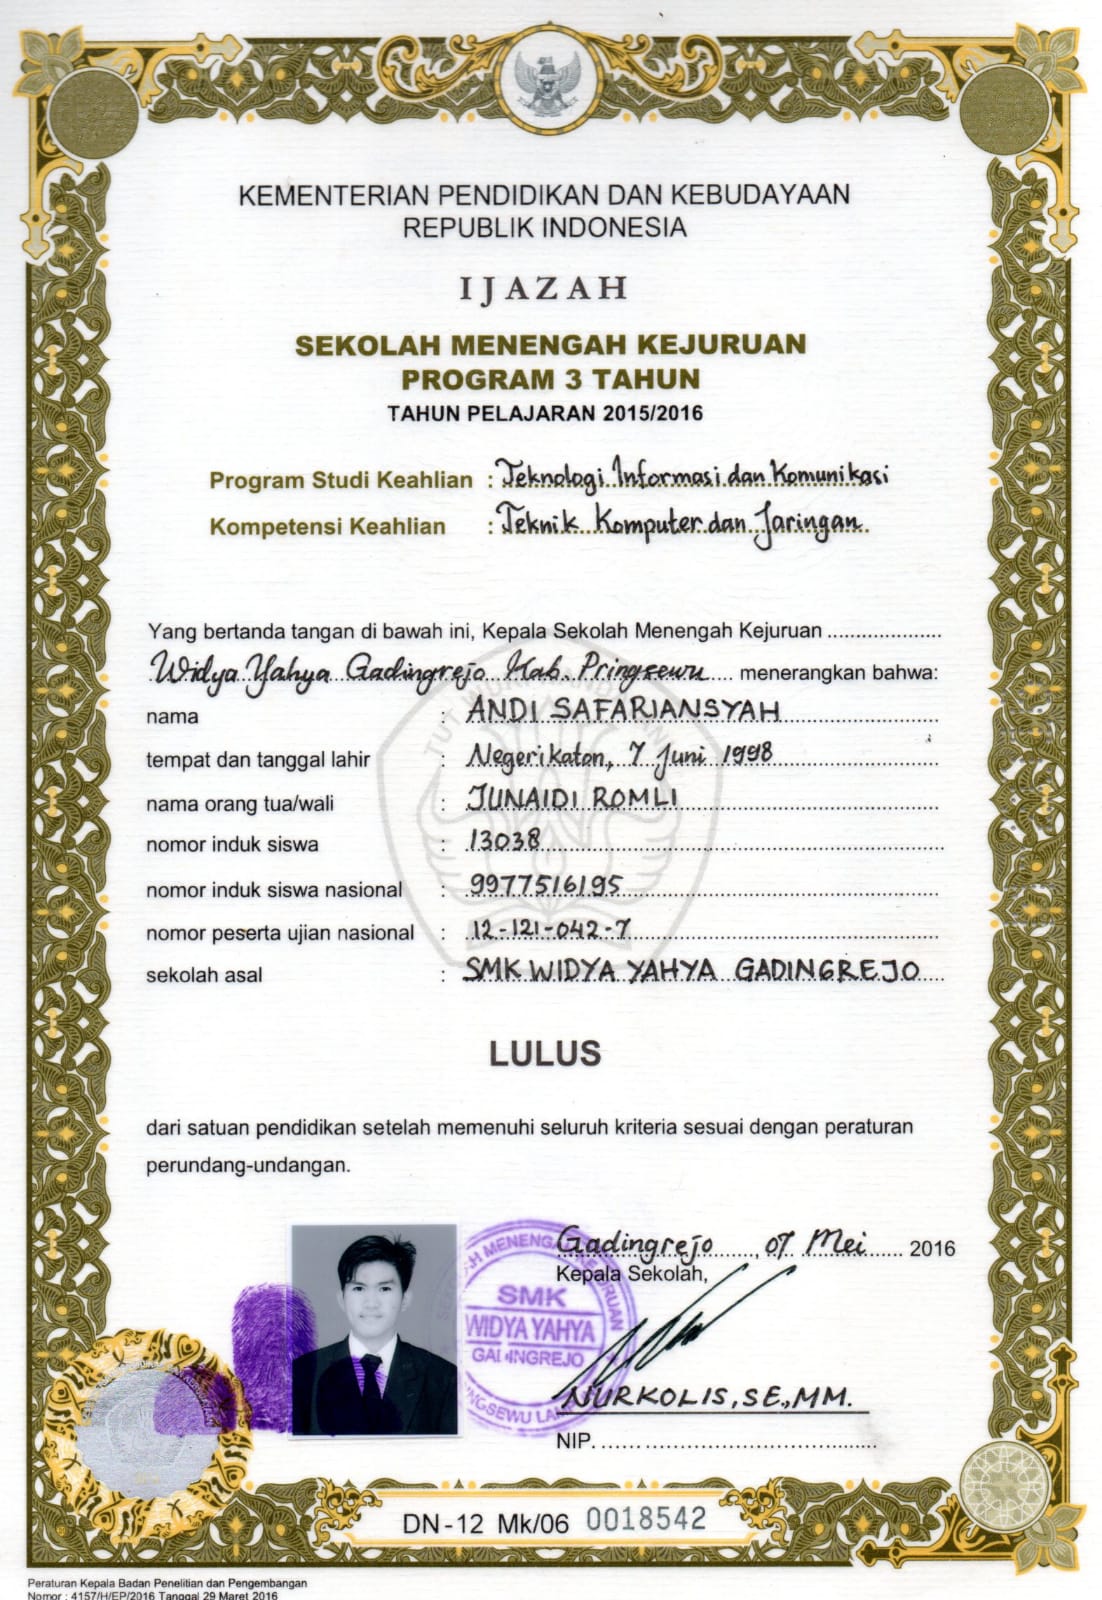 KEMENTERIAN PENDIDIKAN DAN KEBUDAYAAN
REPUBLIK INDONESIA
IJAZAH
SEKOLAH MENENGAH KEJURUAN
PROGRAM 3 TAHUN
TAHUN PELAJARAN 2015/2016
Program Studi Keahlian : Teknologi Informasi dan Komunikasi
Kompetensi Keahlian : Teknik Komputer dan Jaringan
Yang bertanda tangan di bawah ini, Kepala Sekolah Menengah Kejuruan
Widya Yahya Gadingrejo Kab. Pringsewu menerangkan bahwa:
nama : ANDI SAFARIANSYAH
tempat dan tanggal lahir : Negerikaton, 7 Juni 1998
nama orang tua/wali : JUNAIDI ROMLI
nomor induk siswa : 13038
nomor induk siswa nasional : 9977516195
nomor peserta ujian nasional : 12-121-042-7
sekolah asal : SMK WIDYA YAHYA GADINGREJO
LULUS
dari satuan pendidikan setelah memenuhi seluruh kriteria sesuai dengan peraturan
perundang-undangan.
Gadingrejo, 07 Mei 2016
Kepala Sekolah,
SMK
WIDYA YAHYA
GADINGREJO
NURKOLIS, SE., MM.
NIP.
DN-12 Mk/06 0018542
Peraturan Kepala Badan Penelitian dan Pengembangan
Nomor : 4157/H/EP/2016 Tanggal 29 Maret 2016